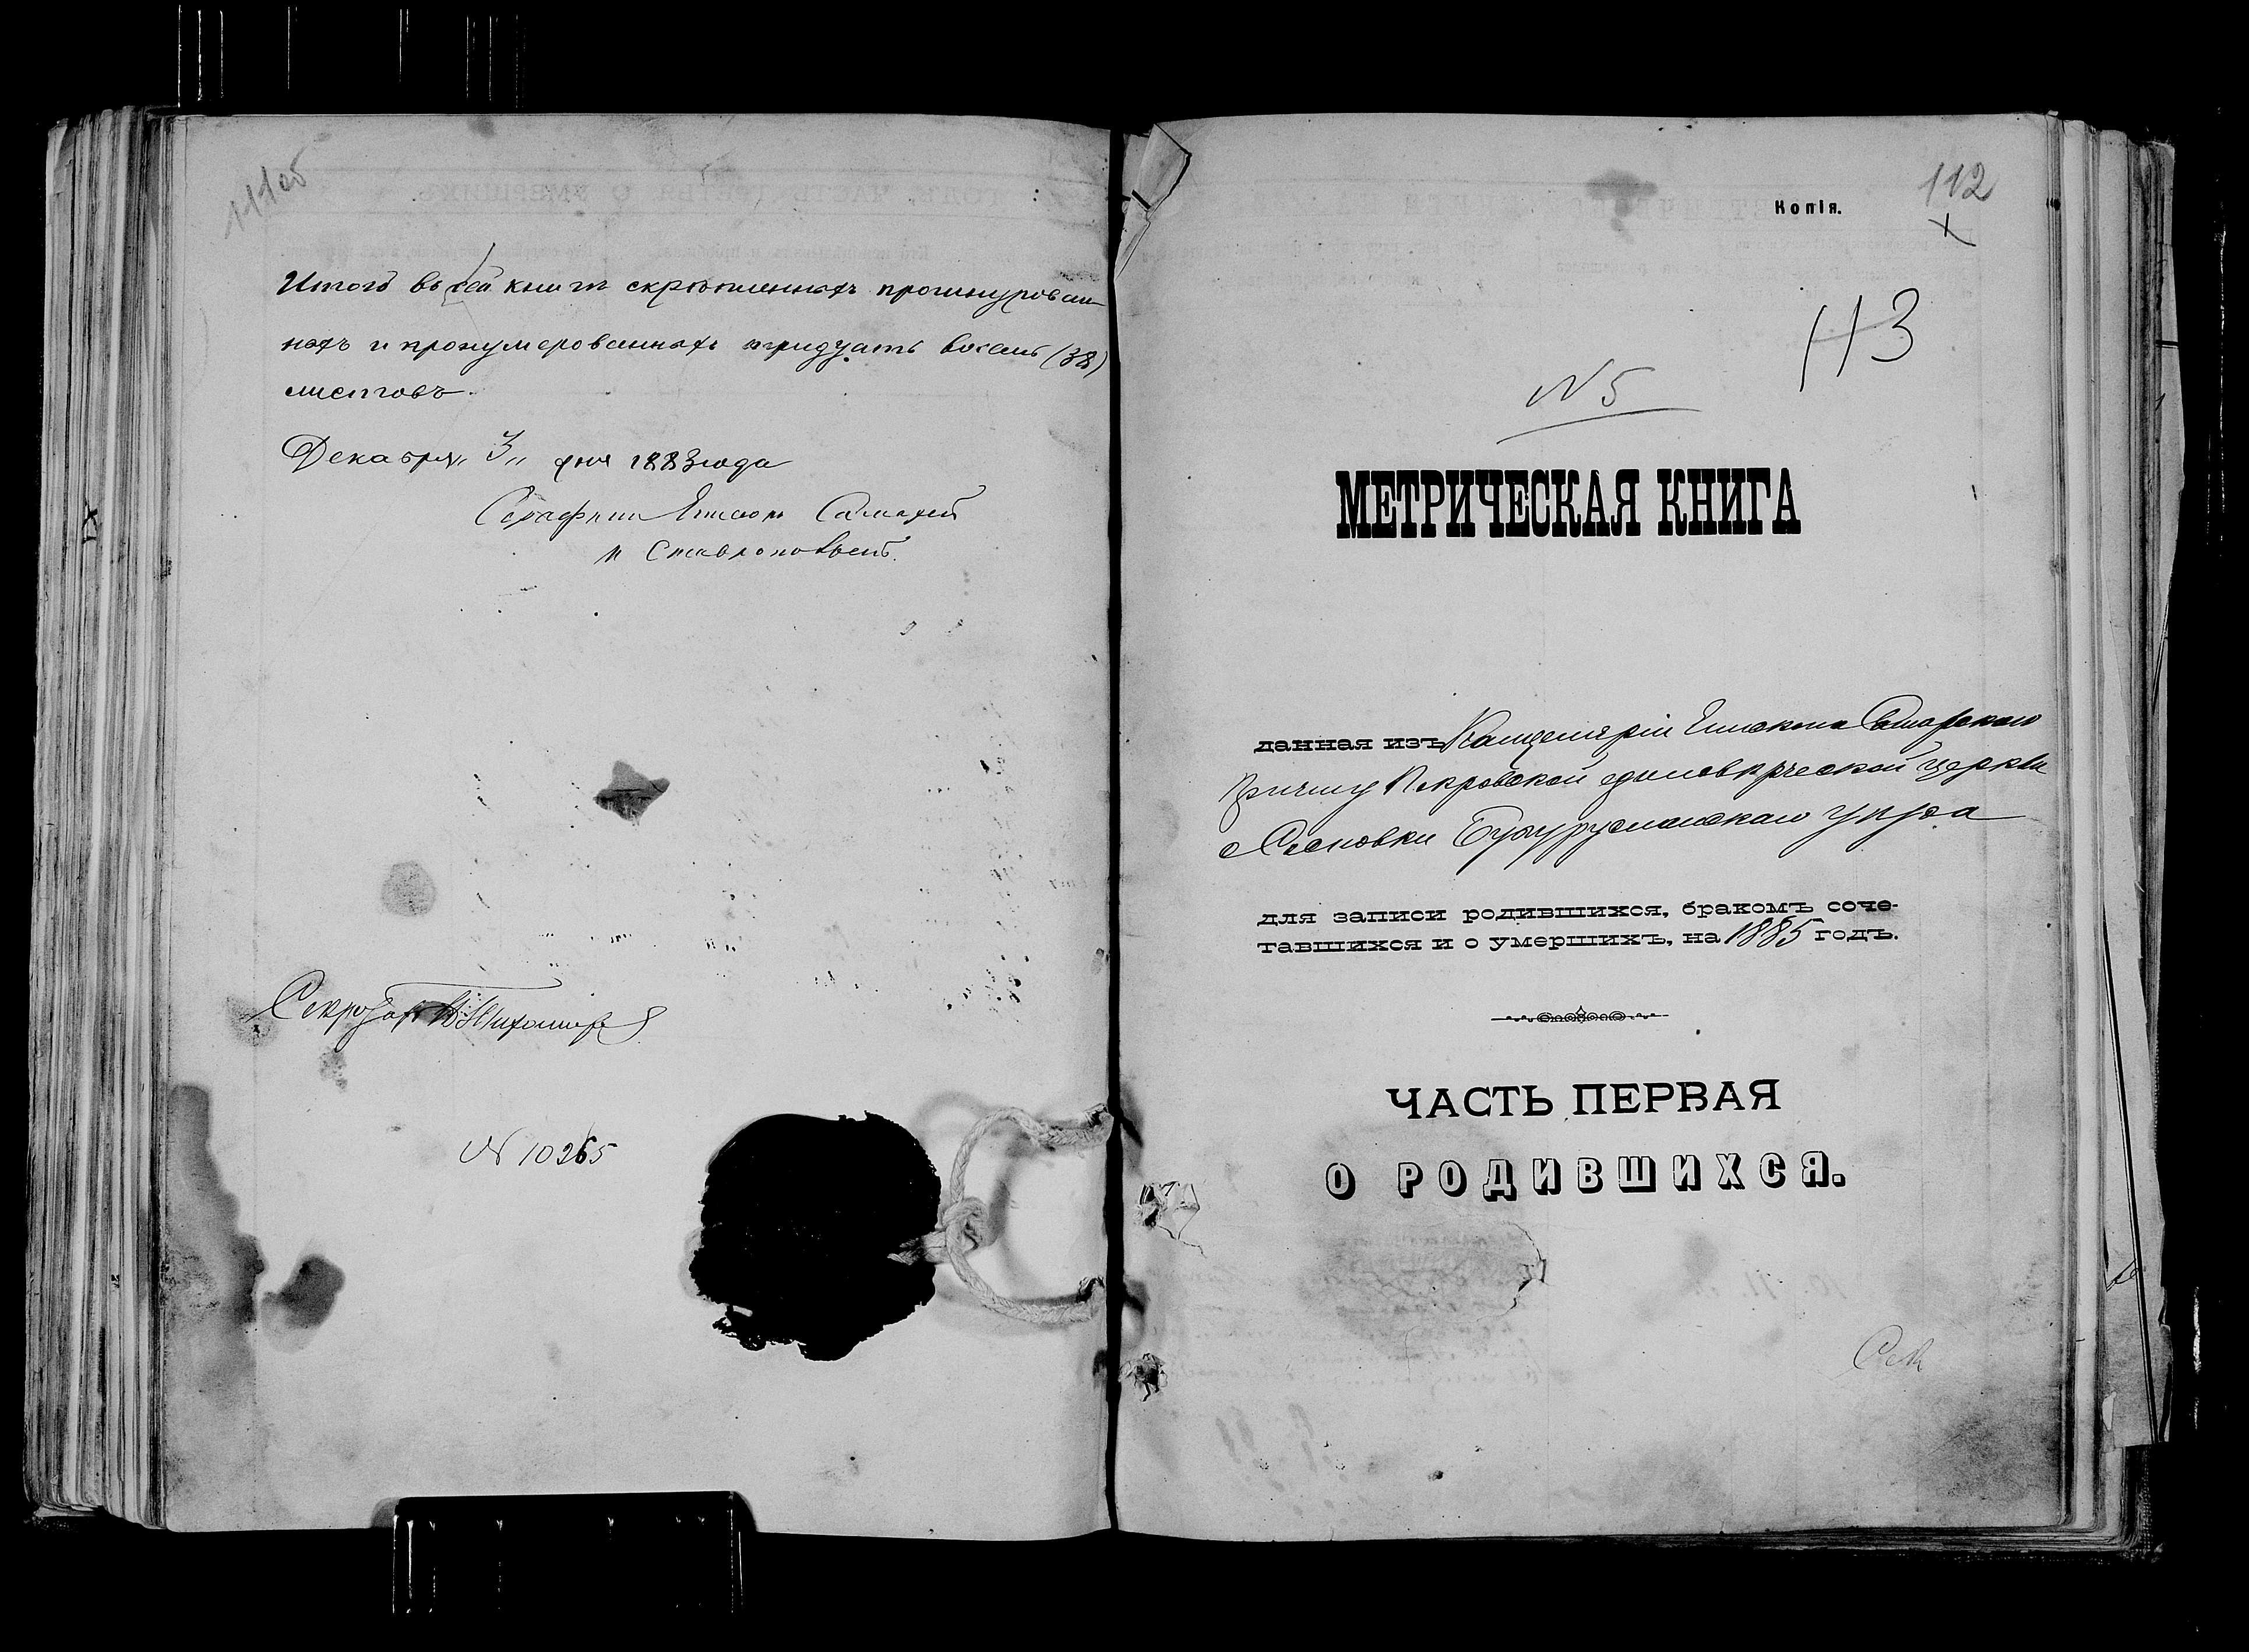 111об
Итого въ сей книгѣ скрѣпленныхъ прошнурован-
ныхъ и пронумерованныхъ тридцать восемь (38)
листовъ.
Декабря „3„ дня 1883 года
Серафимъ Епископъ Самарскій
и Ставропольскій.
Секретарь
N 10265
112
Копія.
113
N 5
МЕТРИЧЕСКАЯ КНИГА
данная изъ Канцеляріи Епископа Самарскаго
Причту Покровской единовѣрческой церкви
с Сосновки Бугурусланскаго уѣзда
для записи родившихся, бракомъ соче-
тавшихся и о умершихъ, на 1885 годъ.
ЧАСТЬ ПЕРВАЯ
О РОДИВШИХСЯ.
Сек